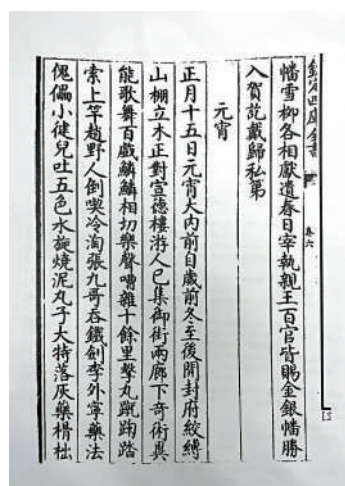 欽定四庫全書
卷六
幡雪柳各相獻遺春日宰執親王百官皆賜金銀幡勝
入賀訖戴歸私第
元宵
正月十五日元宵大内前自歲前冬至後開封府絞縛
山棚立木正對宣德樓游人已集御街兩廊下奇術異
能歌舞百戲鱗鱗相切樂聲嘈雜十餘里擊丸蹴踘踏
索上竿趙野人倒喫冷淘張九哥吞鐵劍李外寧藥法
傀儡小健兒吐五色水旋燒泥丸子大特落灰藥榾柮